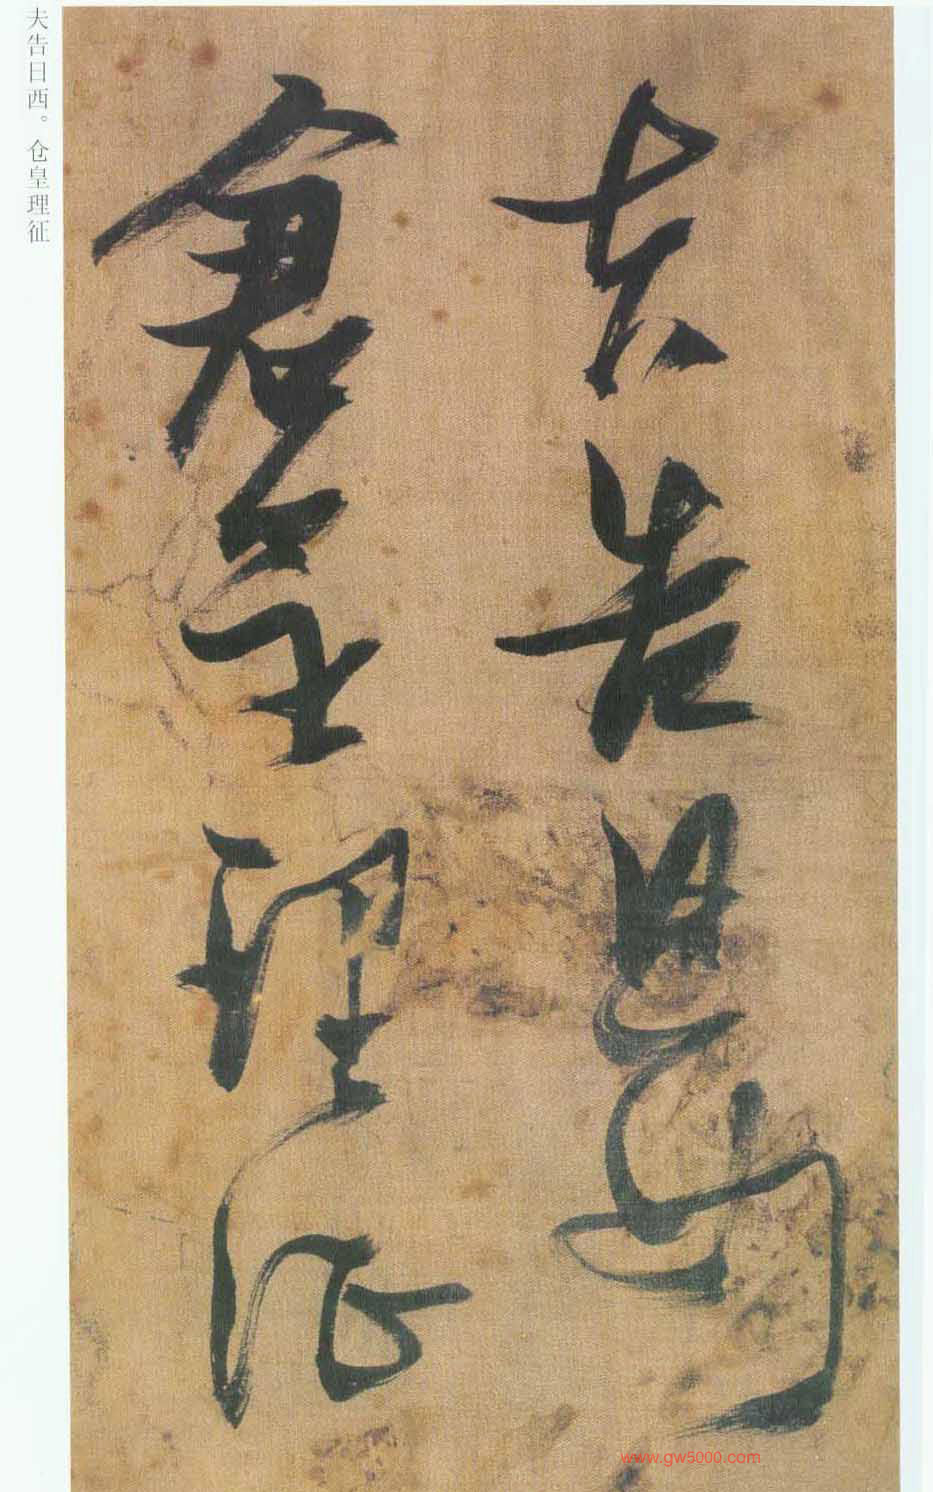 夫告日西
倉皇理征
夫告日西。仓皇理征
www.gw5000.com